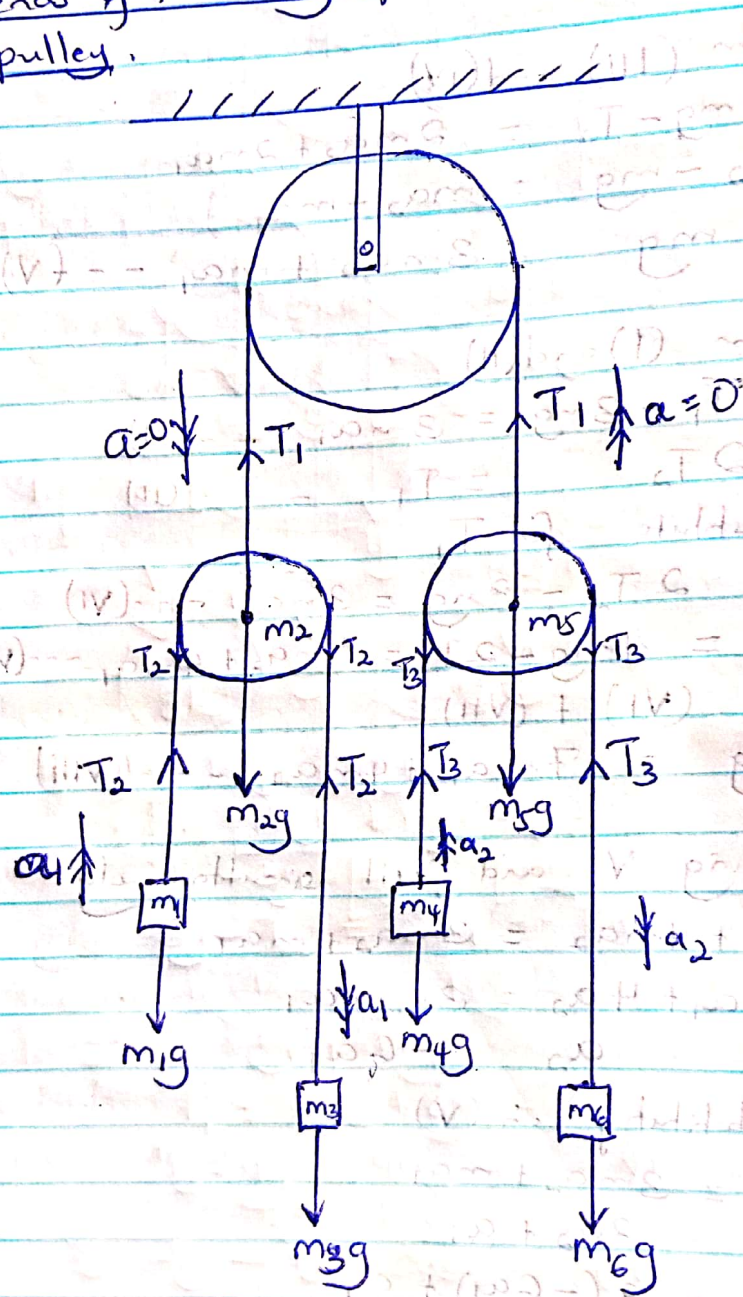 pulley.
a=0
T₁
T₁
a=0
m2
m5
T₂
T₂
T₃
T₃
T₂
m₂g
T₂
T₃
m₅g
T₃
a₁
a₂
m₁
m₄
a₂
a₁
m₁g
m₄g
m₃
m₆
m₃g
m₆g